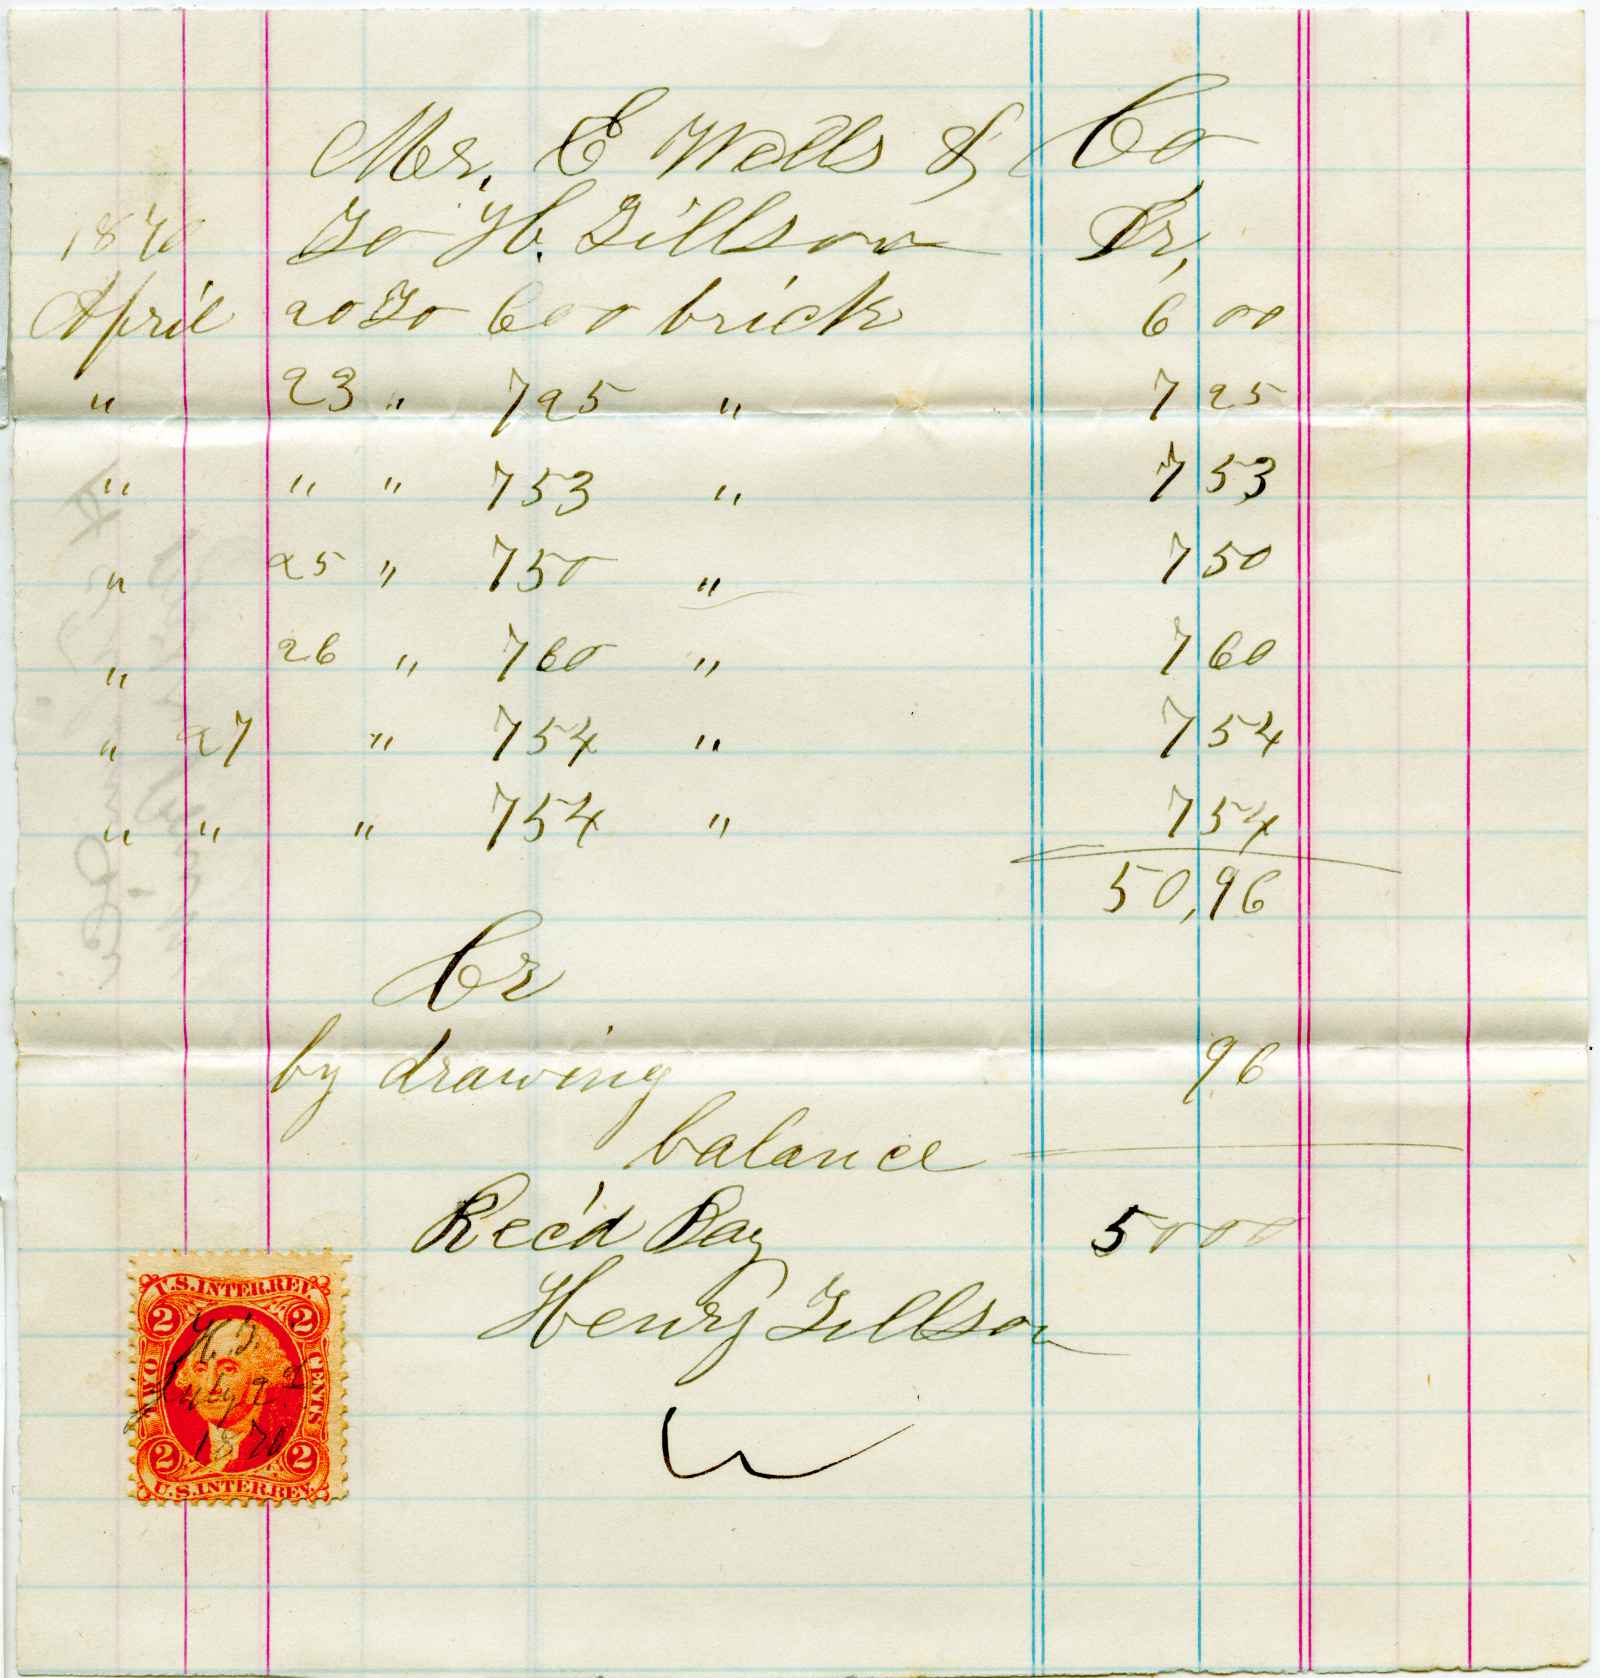 Mr. E Wells & Co
1870 To H. Gillson Dr,
April 20 To 600 brick 6 00
" 23 " 725 " 7 25
" " " 753 " 7 53
" 25 " 750 " 7 50
" 26 " 760 " 7 60
" 27 " 754 " 7 54
" " " 754 " 7 54
50,96
Cr
by drawing 96
balance
Rec'd Pay 50 00
Henry Gillson
U.S. INTER. REV.
2 2
H. G.
TWO CENTS
1870
2 2
U.S. INTER. REV.